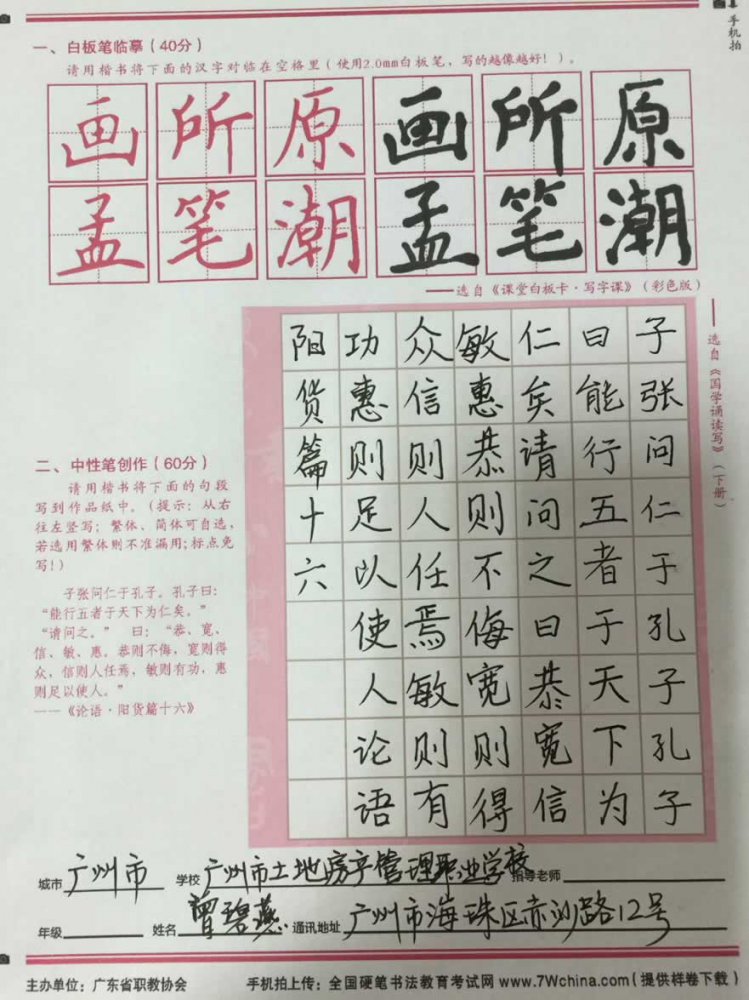 手机拍
一、白板笔临摹(40分)
请用楷书将下面的汉字对临在空格里(使用2.0mm白板笔,写的越像越好!)。
画所原画所原
孟笔潮孟笔潮
——选自《课堂白板卡·写字课》(彩色版)
——选自《国学诵读写》(下册)
二、中性笔创作(60分)
请用楷书将下面的句段
写到作品纸中。(提示:从右
往左竖写;繁体、简体可自选,
若选用繁体则不准漏用;标点免
写!)
子张问仁于孔子。孔子曰:
“能行五者于天下为仁矣。”
“请问之。” 曰:“恭、宽、
信、敏、惠。恭则不侮,宽则得
众,信则人任焉,敏则有功,惠
则足以使人。”
——《论语·阳货篇十六》
子张问仁于孔子孔子
曰能行五者于天下为
仁矣请问之曰恭宽信
敏惠恭则不侮宽则得
众信则人任焉敏则有
功惠则足以使人论语
阳货篇十六
城市 广州市 学校 广州市土地房产管理职业学校 指导老师
年级 姓名 曾碧燕 通讯地址 广州市海珠区赤沙路12号
主办单位:广东省职教协会 手机拍上传:全国硬笔书法教育考试网 www.7Wchina.com(提供样卷下载)